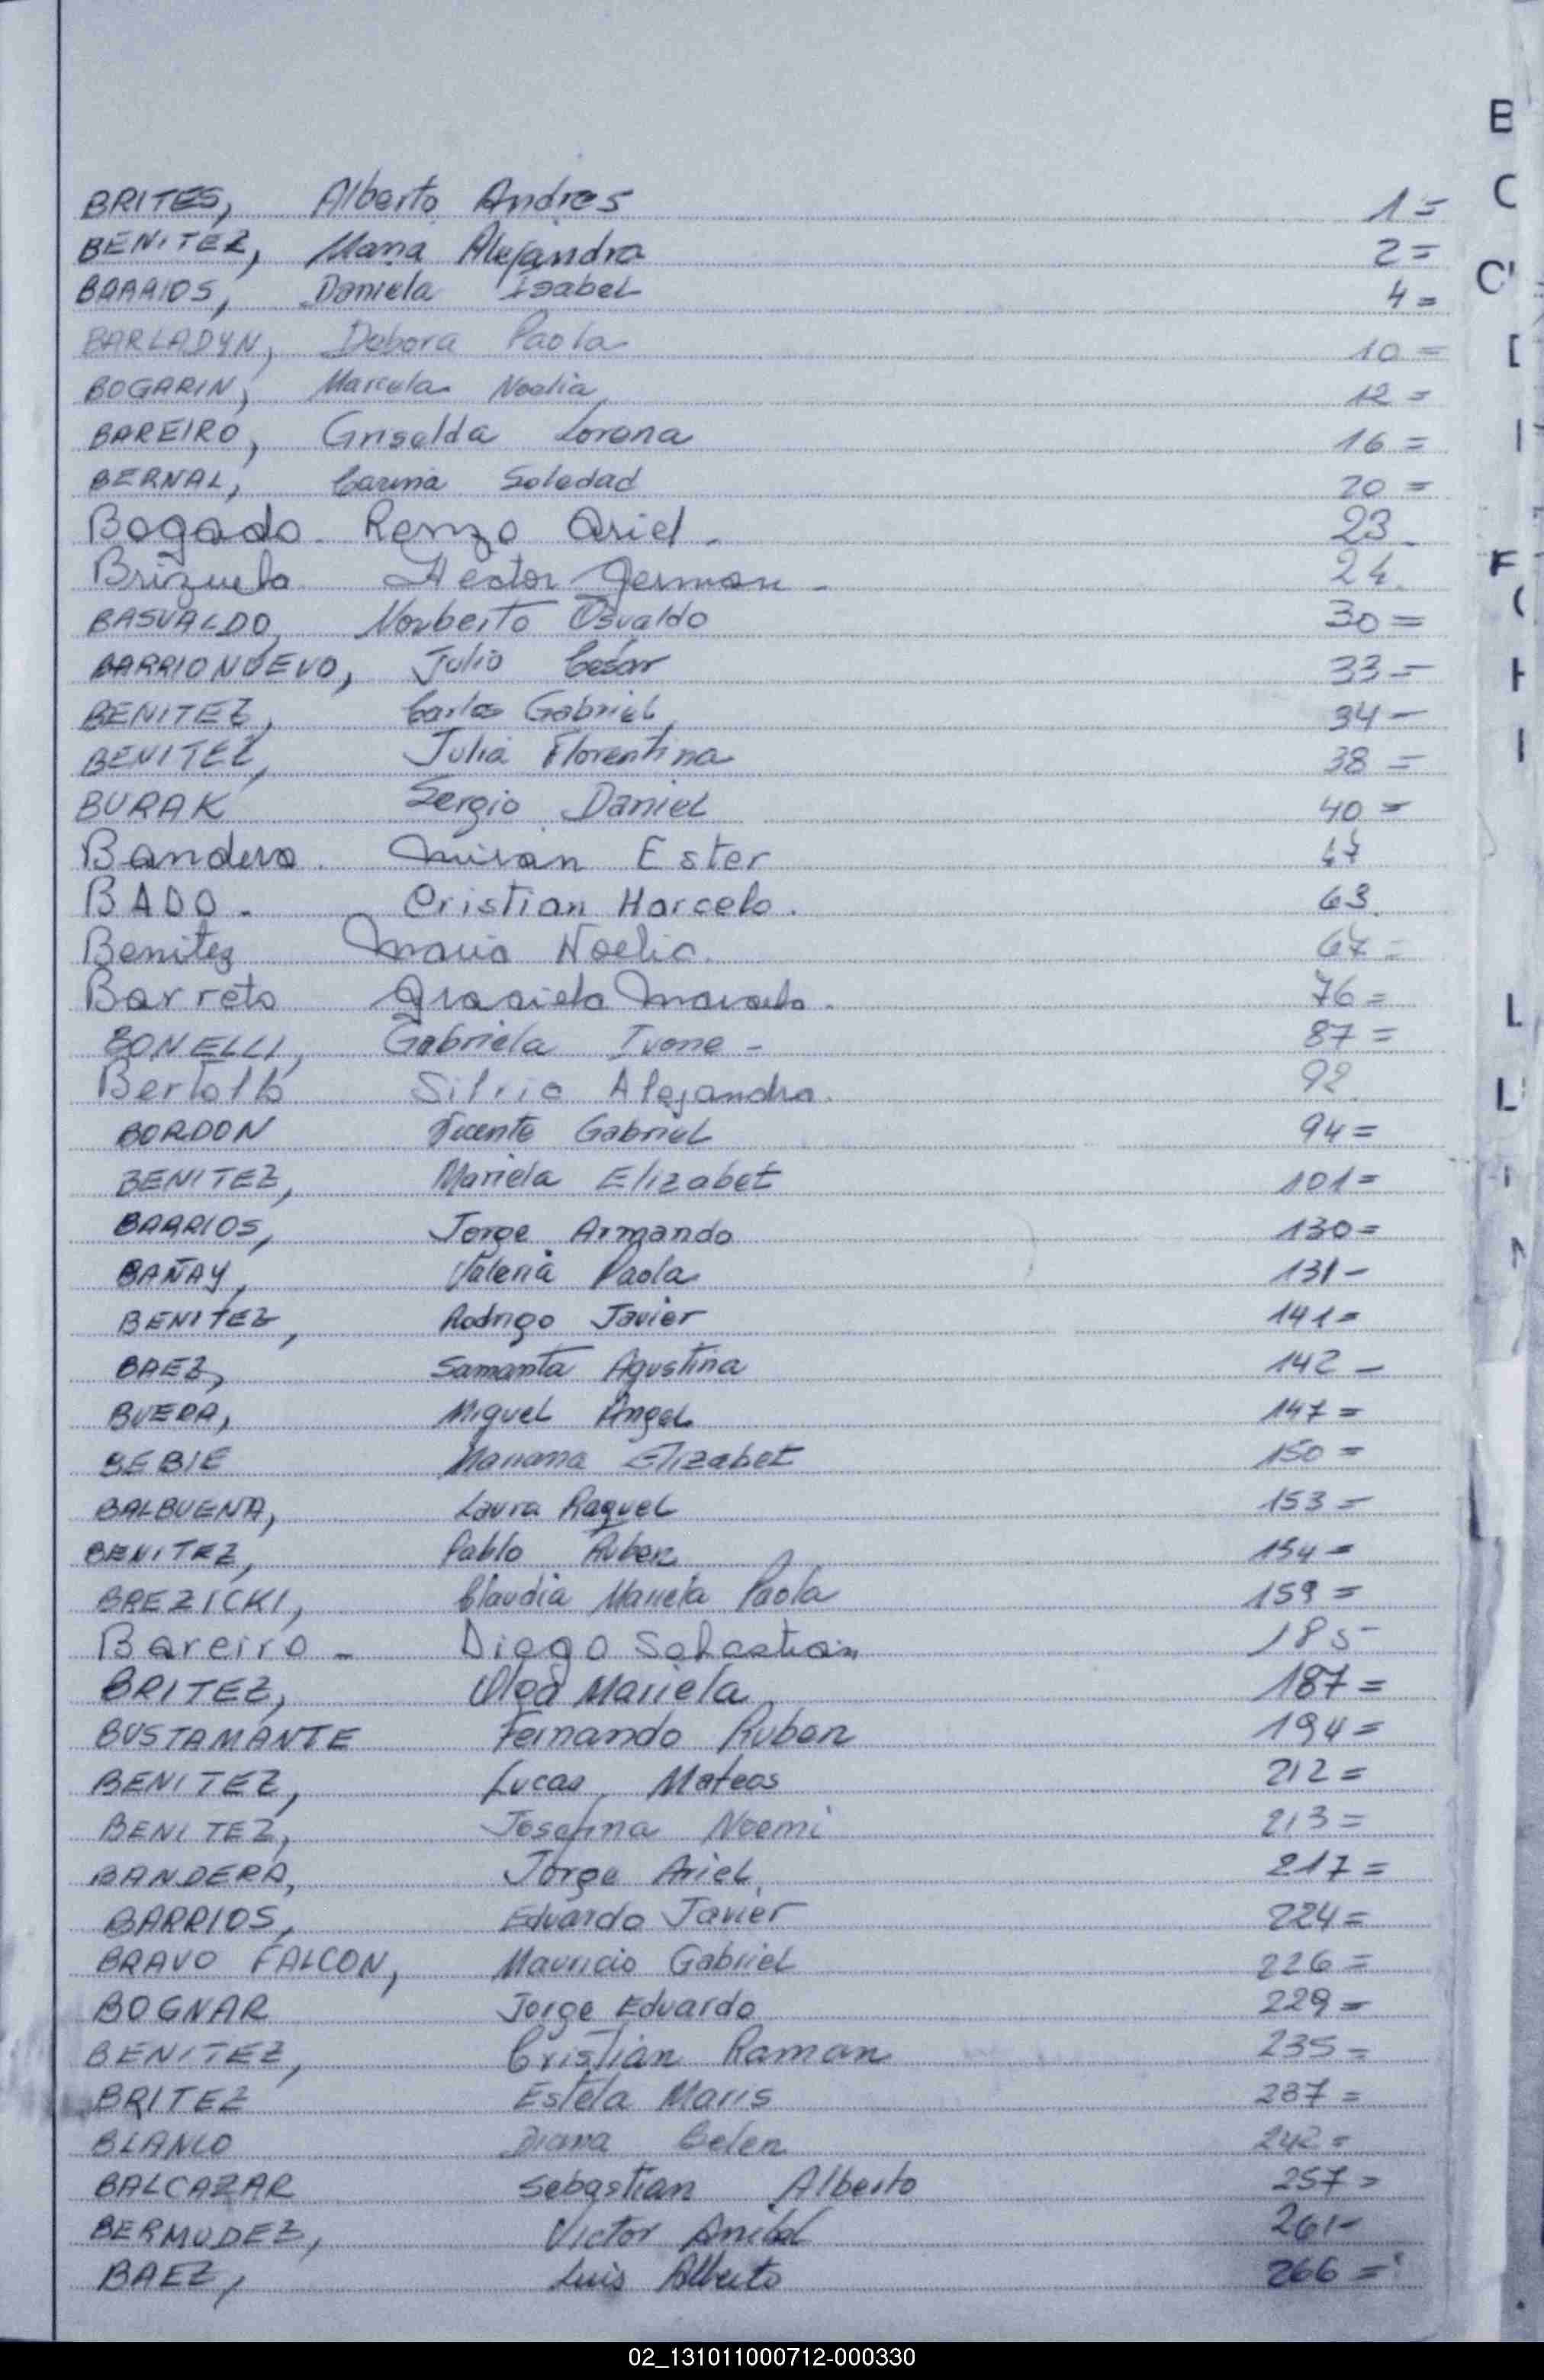 B
C
BRITES, Alberto Andres 1=
BENITEZ, Maria Alejandra 2=
BARRIOS, Daniela Isabel 4=
BARLADYN, Debora Paola 10=
BOGARIN, Marcela Noelia 12=
BAREIRO, Griselda Lorena 16=
BERNAL, Carina Soledad 20=
Bogado. Renzo Ariel. 23
Brizuela Hector German - 24
BASUALDO, Norberto Osvaldo 30=
BARRIONUEVO, Julio Cesar 33=
BENITEZ, Carlos Gabriel 34-
BENITEZ, Julia Florentina 38=
BURAK Sergio Daniel 40=
Bandera. Mirian Ester 47
BADO. Cristian Marcelo. 63
Benitez Maria Noelia. 67=
Barreto Graciela Marcela. 76=
BONELLI, Gabriela Ivone - 87=
Bertollo Silvia Alejandra. 92
BORDON Vicente Gabriel 94=
BENITEZ, Mariela Elizabet 101=
BARRIOS, Jorge Armando 130=
BAÑAY, Valeria Paola 131-
BENITEZ, Rodrigo Javier 141=
BAEZ, Samanta Agustina 142-
BUERA, Miguel Angel 147=
BEBIE Mariana Elizabet 150=
BALBUENA, Laura Raquel 153=
BENITEZ, Pablo Ruben 154=
BREZICKI, Claudia Mariela Paola 159=
Bareiro - Diego Sebastian 185-
BRITEZ, Olga Mariela 187=
BUSTAMANTE Fernando Ruben 194=
BENITEZ, Lucas Mateos 212=
BENITEZ, Josefina Noemi 213=
BANDERA, Jorge Ariel 217=
BARRIOS, Eduardo Javier 224=
BRAVO FALCON, Mauricio Gabriel 226=
BOGNAR Jorge Eduardo 229=
BENITEZ, Cristian Ramon 235=
BRITEZ Estela Maris 237=
BLANCO Diana Belen 242=
BALCAZAR Sebastian Alberto 257=
BERMUDEZ, Victor Anibal 261-
BAEZ, Luis Alberto 266=
02_131011000712-000330